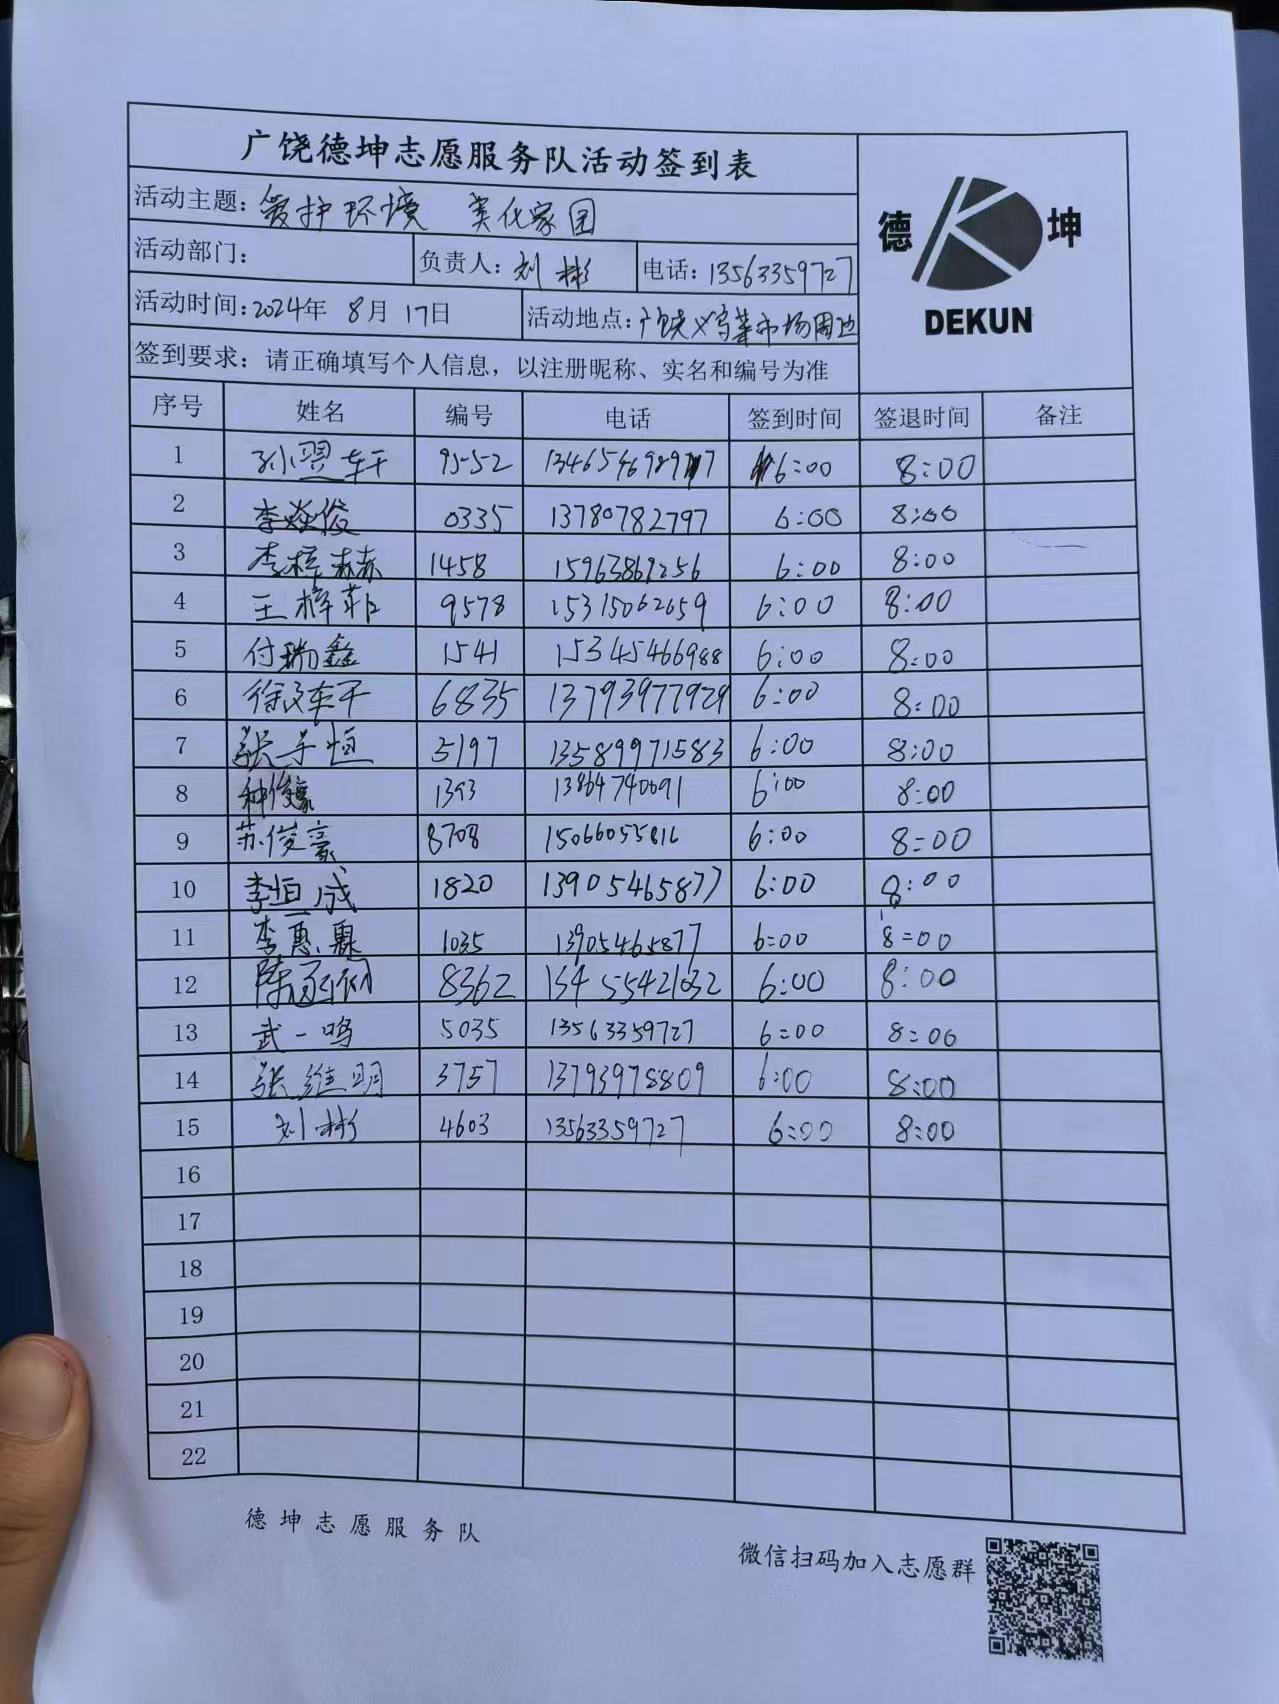 广饶德坤志愿服务队活动签到表
德 坤
DEKUN
活动主题：爱护环境 美化家园
活动部门： 负责人：刘彬 电话：13563359727
活动时间：2024年 8月 17日 活动地点：广饶义乌菜市场周边
签到要求：请正确填写个人信息，以注册昵称、实名和编号为准
序号 姓名 编号 电话 签到时间 签退时间 备注
1 孙 轩 9552 6:00 8:00
2 李焱俊 0335 13780782797 6:00 8:00
3 李梓赫 1458 15963869256 6:00 8:00
4 王梓菲 9578 15315062659 6:00 8:00
5 付瑞鑫 1541 15345466988 6:00 8:00
6 徐文轩 6835 13793977929 6:00 8:00
7 张子恒 5197 13589971583 6:00 8:00
8 1393 13864740091 6:00 8:00
9 苏俊豪 8708 15066055816 6:00 8:00
10 李恒成 1820 13905465877 6:00 8:00
11 李惠霖 1035 13905465877 6:00 8:00
12 陈 8362 13455421032 6:00 8:00
13 武一鸣 5035 13563359727 6:00 8:00
14 张维明 3757 13793978809 6:00 8:00
15 刘彬 4603 13563359727 6:00 8:00
16
17
18
19
20
21
22
德坤志愿服务队
微信扫码加入志愿群